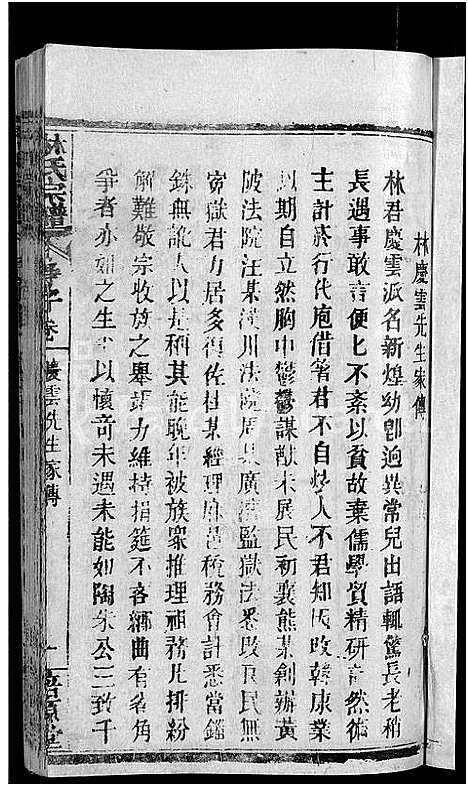 林慶雲先生家傳
林君慶雲派名新煌幼卽逈異常兒出語輒驚長老稍
長遇事敢言便匕不紊以貧故棄儒學貿精研計然術
主計於行代庖借箸君不自炫人不君知因改韓康業
以期自立然胸中鬱鬱謀猷未展民初襄熊某創辦黃
陂法院汪某漢川法院周某廣濟監獄法悉改良民無
寃獄君力居多復佐杜某經理麻邑稅務會計悉當錙
銖無訛人以是稱其能晚年被族衆推理祠務凡排紛
解難敬宗收族之舉竭力維持捐筵不吝鄉曲有名角
爭者亦如之生平以懷奇未遇未能如陶朱公三致千
林氏宗譜
卷
慶雲先生家傳
一
堂